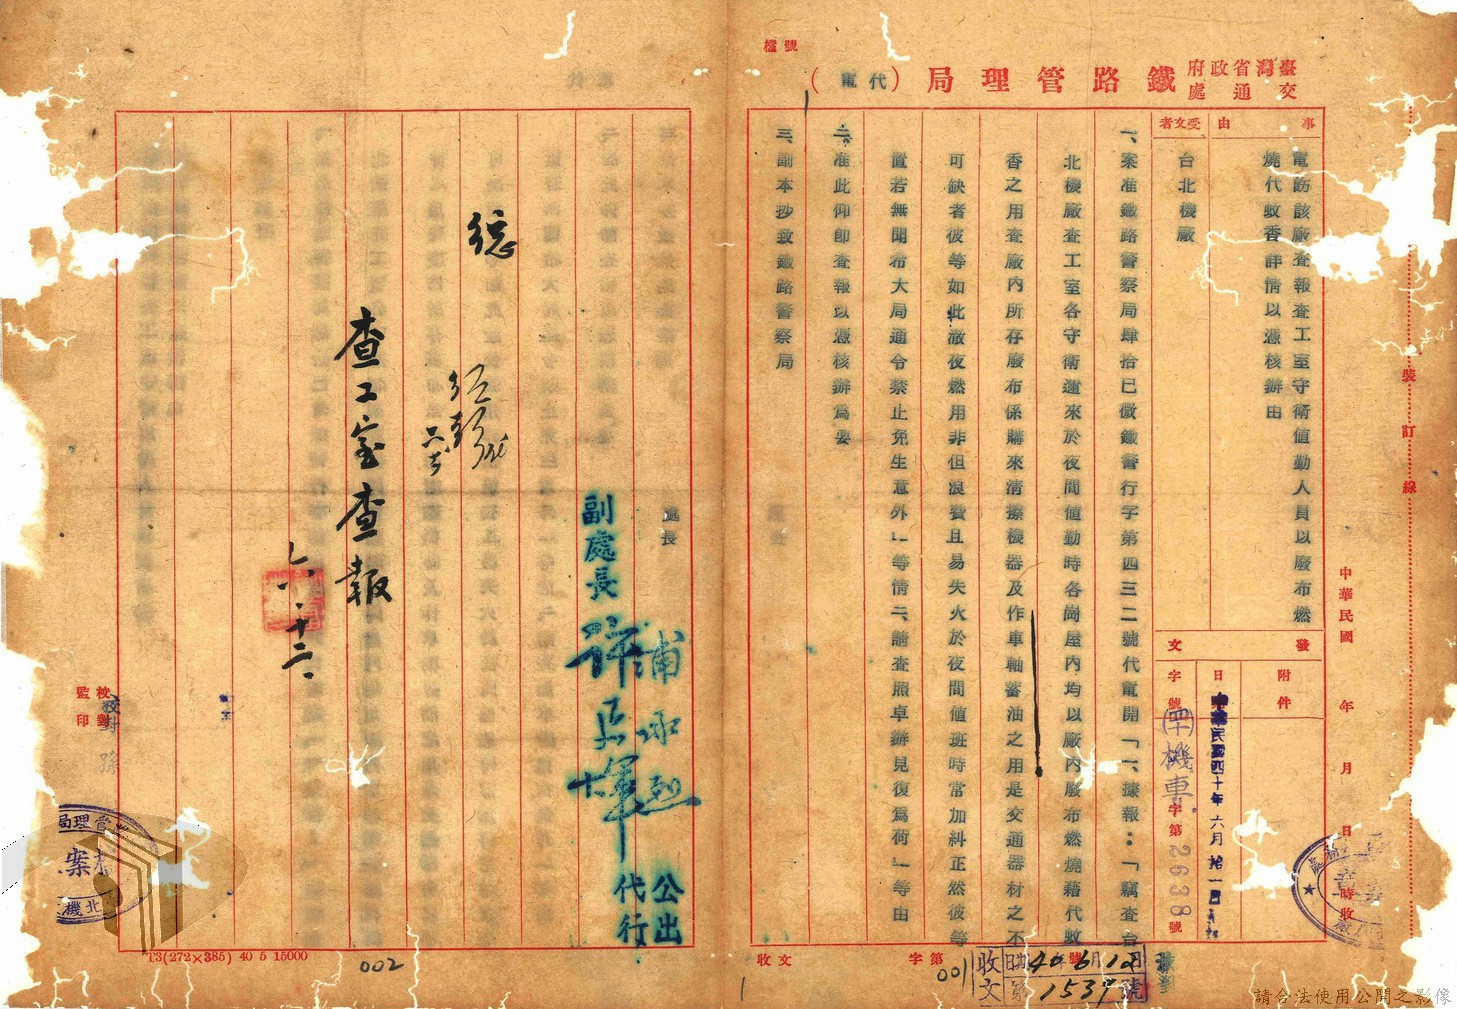 檔號
臺灣省政府交通處鐵路管理局(代電)
事由
電飭該廠查報查工室守衛值勤人員以廢布燃
燒代蚊香詳情以憑核辦由
受文者
台北機廠
發文
附件
日
中華民國四十年六月拾一日
字號
(四十)機車字第2638號
一、案准鐵路警察局肆拾巳微鐵警行字第四三二號代電開「一、據報:「竊查台
北機廠查工室各守衛邇來於夜間值勤時各崗屋內均以廠內廢布燃燒藉代蚊
香之用查廠內所存廢布係購來清擦機器及作車軸蓄油之用是交通器材之不
可缺者彼等如此澈夜燃用非但浪費且易失火於夜間值班時常加糾正然彼等
置若無聞希大局通令禁止免生意外」等情二、請查照卓辦見復為荷」等由
二、准此仰即查報以憑核辦為要
三、副本抄致鐵路警察局
裝訂線
中華民國 年 月 日 時收
收文 字第
001
收文 40年6月12日
第1537號
處長
公出
副處長
代行
查工室查報
六.十二.
校對
監印
校對 孫
管理局
案
北機
T3(272×385) 40 5 15000
002
請合法使用公開之影像